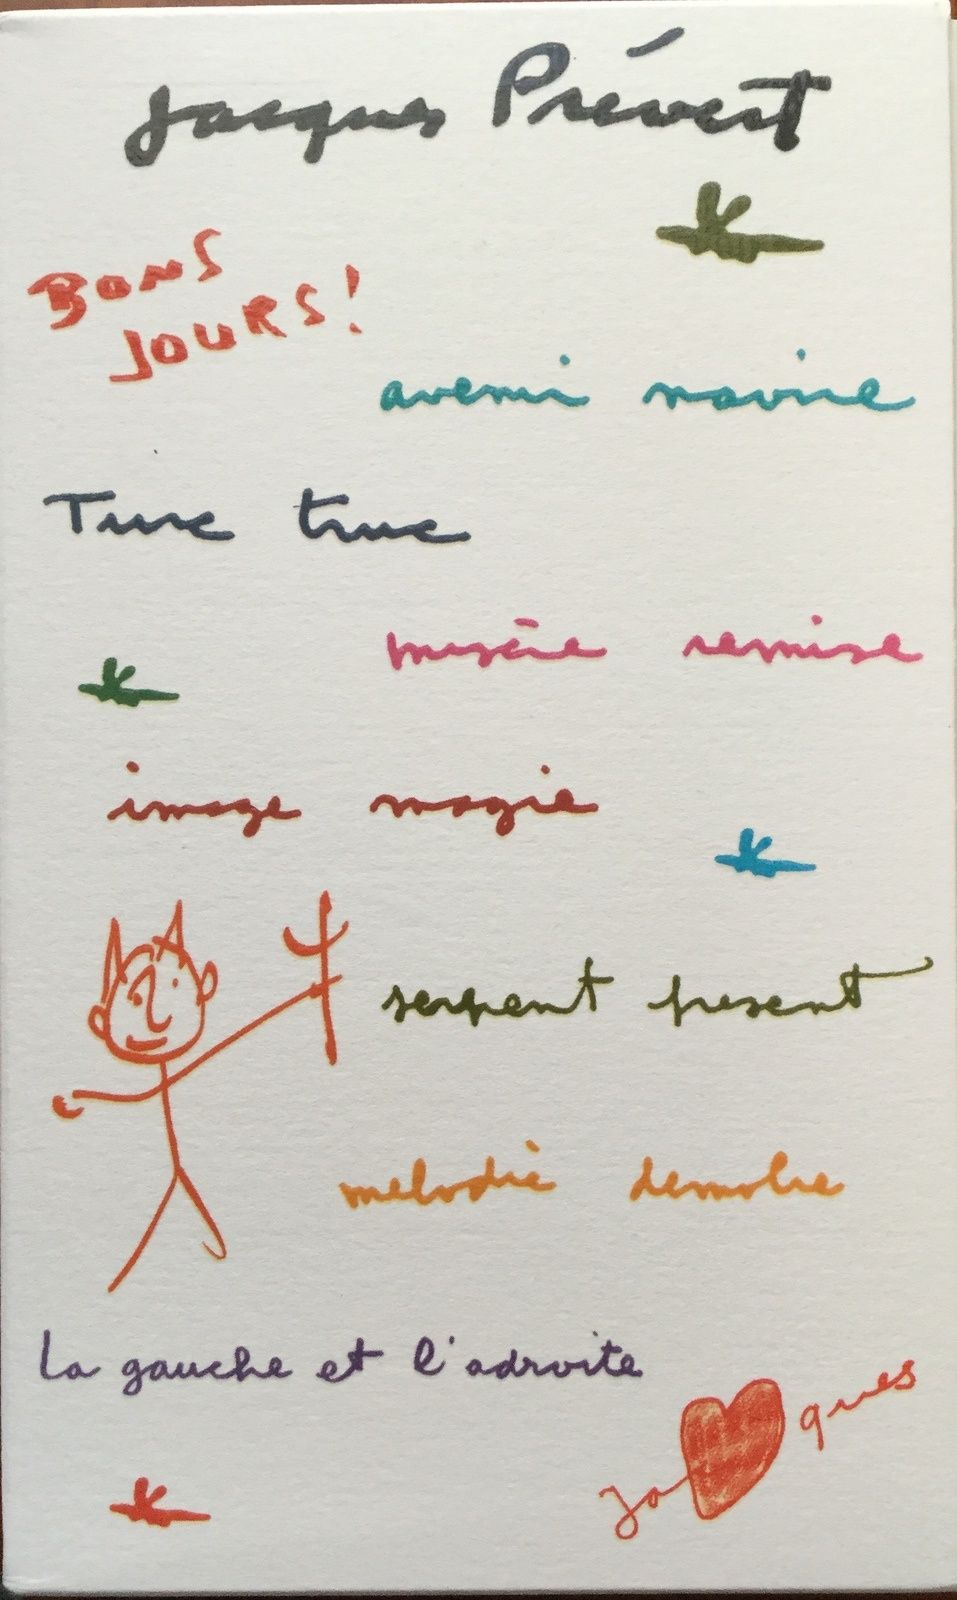 Jacques Prévert
BONS
JOURS!
avenir navire
Turc truc
misère remise
image magie
serpent present
melodie demolie
La gauche et l'adroite
Jaques